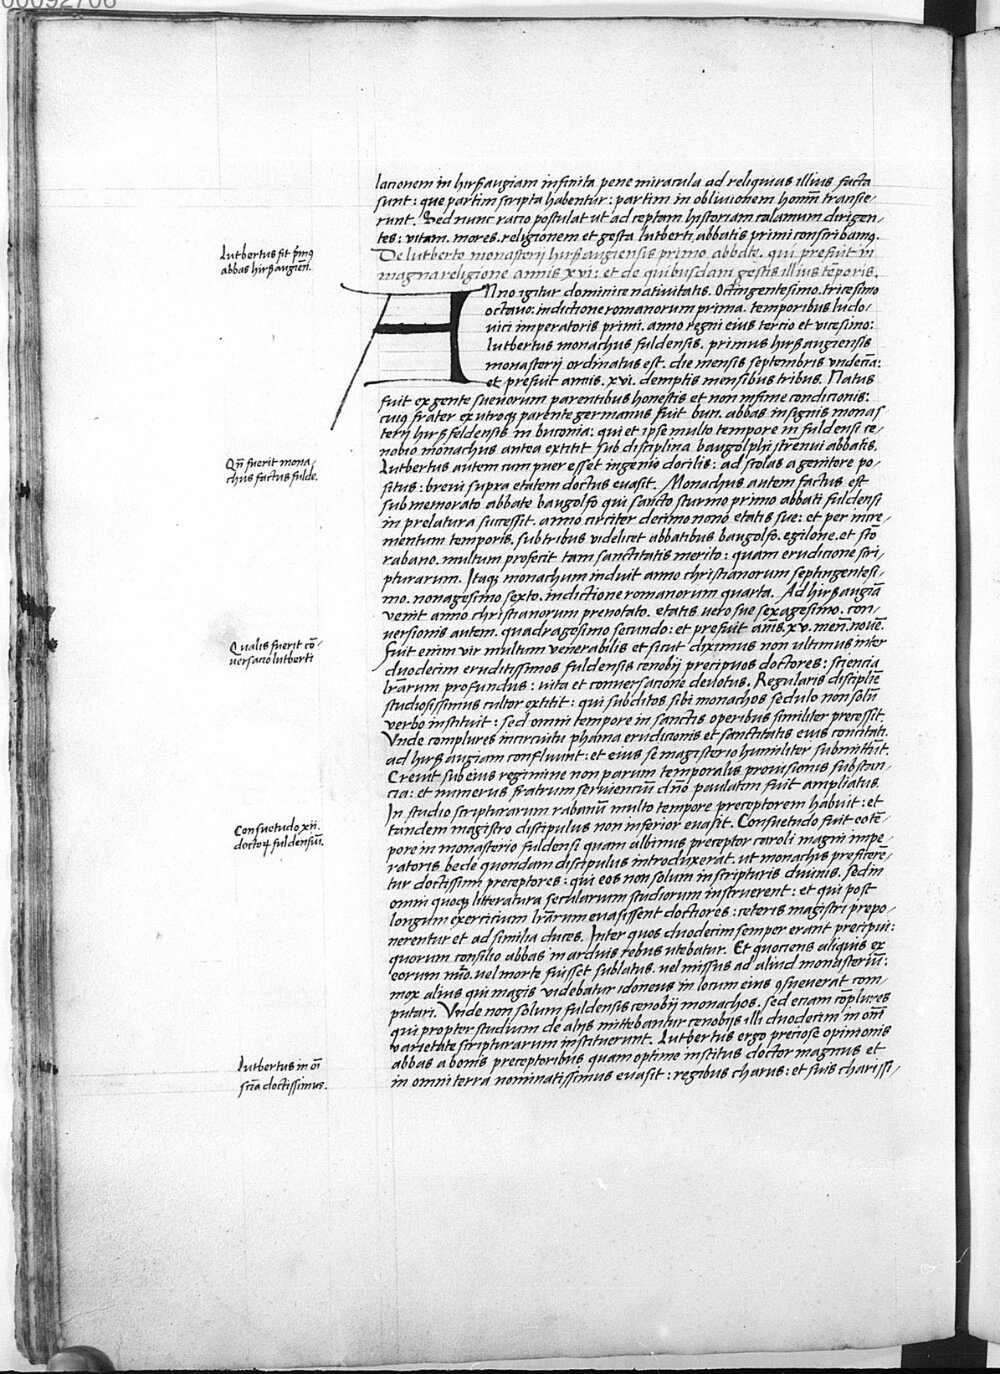 00092706
lacionem in hirßaugiam infinita pene miracula ad reliquias illius facta
sunt: que partim scripta habentur: partim in oblivionem hominũ transie-
runt. Sed nunc racio postulat ut ad ceptam historiam calamum dirigen-
tes: vitam. mores. religionem et gesta lutberti abbatis primi conscribamꝰ.
Lutbertus fit prĩꝰ
abbas hirßaugieñ.
De lutberto monasterij hirßaugiensis primo abbate. qui prefuit in
magna religione annis xvi: et de quibusdam gestis illius tẽporis.
ANno igitur dominice nativitatis. Octingentesimo. tricesimo
octavo. indictione romanorum prima. temporibus ludo-
vici imperatoris primi. anno regni eius tercio et vicesimo:
lutbertus monachus fuldensis. primus hirßaugiensis
monasterij ordinatus est. die mensis septembris vndecĩa:
et prefuit annis. xvi. demptis mensibus tribus. Natus
fuit ex gente suevorum parentibus honestis et non infime condicionis:
cuiꝰ frater ex utroqꝫ parente germanus fuit bun. abbas insignis monas-
terij hirßfeldensis in buconia: qui et ipse multo tempore in fuldensi ce-
nobio monachus antea extitit sub disciplina baugolphi strẽnui abbatis.
Qñ fuerit mona-
chus factus fulde.
Lutbertus autem cum puer esset ingenio docilis: ad scolas a genitore po-
situs: brevi supra etatem doctus evasit. Monachus autem factus est
sub memorato abbate baugolfo qui sancto sturmo primo abbati fuldensi
in prelatura successit. anno circiter decimo nono etatis sue: et per incre-
mentum temporis. sub tribus videlicet abbatibus baugolfo. egilone. et scõ
rabano. multum profecit tam sanctitatis merito: quam erudicione scri-
pturarum. Itaqꝫ monachum induit anno christianorum septingentesi-
mo. nonagesimo sexto. indictione romanorum quarta. Ad hirßaugiã
venit anno christianorum prenotato. etatis vero sue sexagesimo. con-
versionis autem. quadragesimo secundo: et prefuit añis. xv. meñ. nouẽ.
Qualis fuerit cõ-
versacio lutberti
Fuit enim vir multum venerabilis et sicut diximus non ultimus inter
duodecim eruditissimos fuldensis cenobij precipuos doctores: sciencia
lrãrum profundus: vita et conversacione devotus. Regularis discipliẽ
studiosissimus cultor extitit: qui subditos sibi monachos sedulo non solũ
verbo instituit: sed omni tempore in sanctis operibus similiter precessit.
Vnde complures in circuitu phama erudicionis et sanctitatis eius concitati.
ad hirßaugiam confluunt: et eius se magisterio humiliter submittũt.
Crevit sub eius regimine non parum temporalis provisionis substan-
cia: et numerus fratrum serviencium dño paulatim fuit ampliatus.
In studio scripturarum rabanũ multo tempore preceptorem habuit: et
tandem magistro discipulus non inferior evasit. Consuetudo fuit eo tẽ-
Consuetudo xii.
doctoꝝ fuldensiũ.
pore in monasterio fuldensi quam albinus preceptor caroli magni impe-
ratoris bede quondam discipulus introduxerat. ut monachis preficerẽ-
tur doctissimi preceptores: qui eos non solum in scripturis divinis. sed in
omni quoqꝫ litteratura secularium studiorum instruerent: et qui post
longum exercicium lrãrum evasissent doctiores: ceteris magistri prepo-
nerentur et ad similia duces. Inter quos duodecim semper erant precipui:
quorum consilio abbas in arduis rebus utebatur. Et quociens aliquis ex
eorum nũo. vel morte fuisset sublatus. vel missus ad aliud monasteriũ:
mox alius qui magis videbatur idoneus in locum eius ꝯsueverat com-
putari. Vnde non solum fuldensis cenobij monachos. sed eciam cõplures
qui propter studium de alijs mittebantur cenobijs illi duodecim in om̃i
varietate scripturarum instituerunt. Lutbertus ergo preciose opinionis
Lutbertus in oĩ
sciã doctissimus.
abbas a bonis preceptoribus quam optime institus doctor magnus et
in omni terra nominatissimus evasit: regibus charus: et suis charissi-